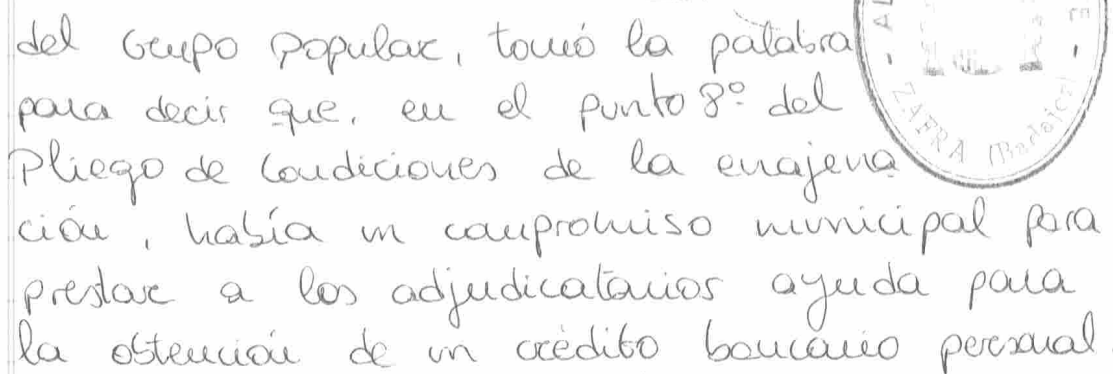 del Grupo Popular, tomó la palabra
para decir que, en el punto 8º del
Pliego de Condiciones de la enajena
ción, había un compromiso municipal para
prestar a los adjudicatarios ayuda para
la obtención de un crédito bancario personal.
ZAFRA (Badajoz)